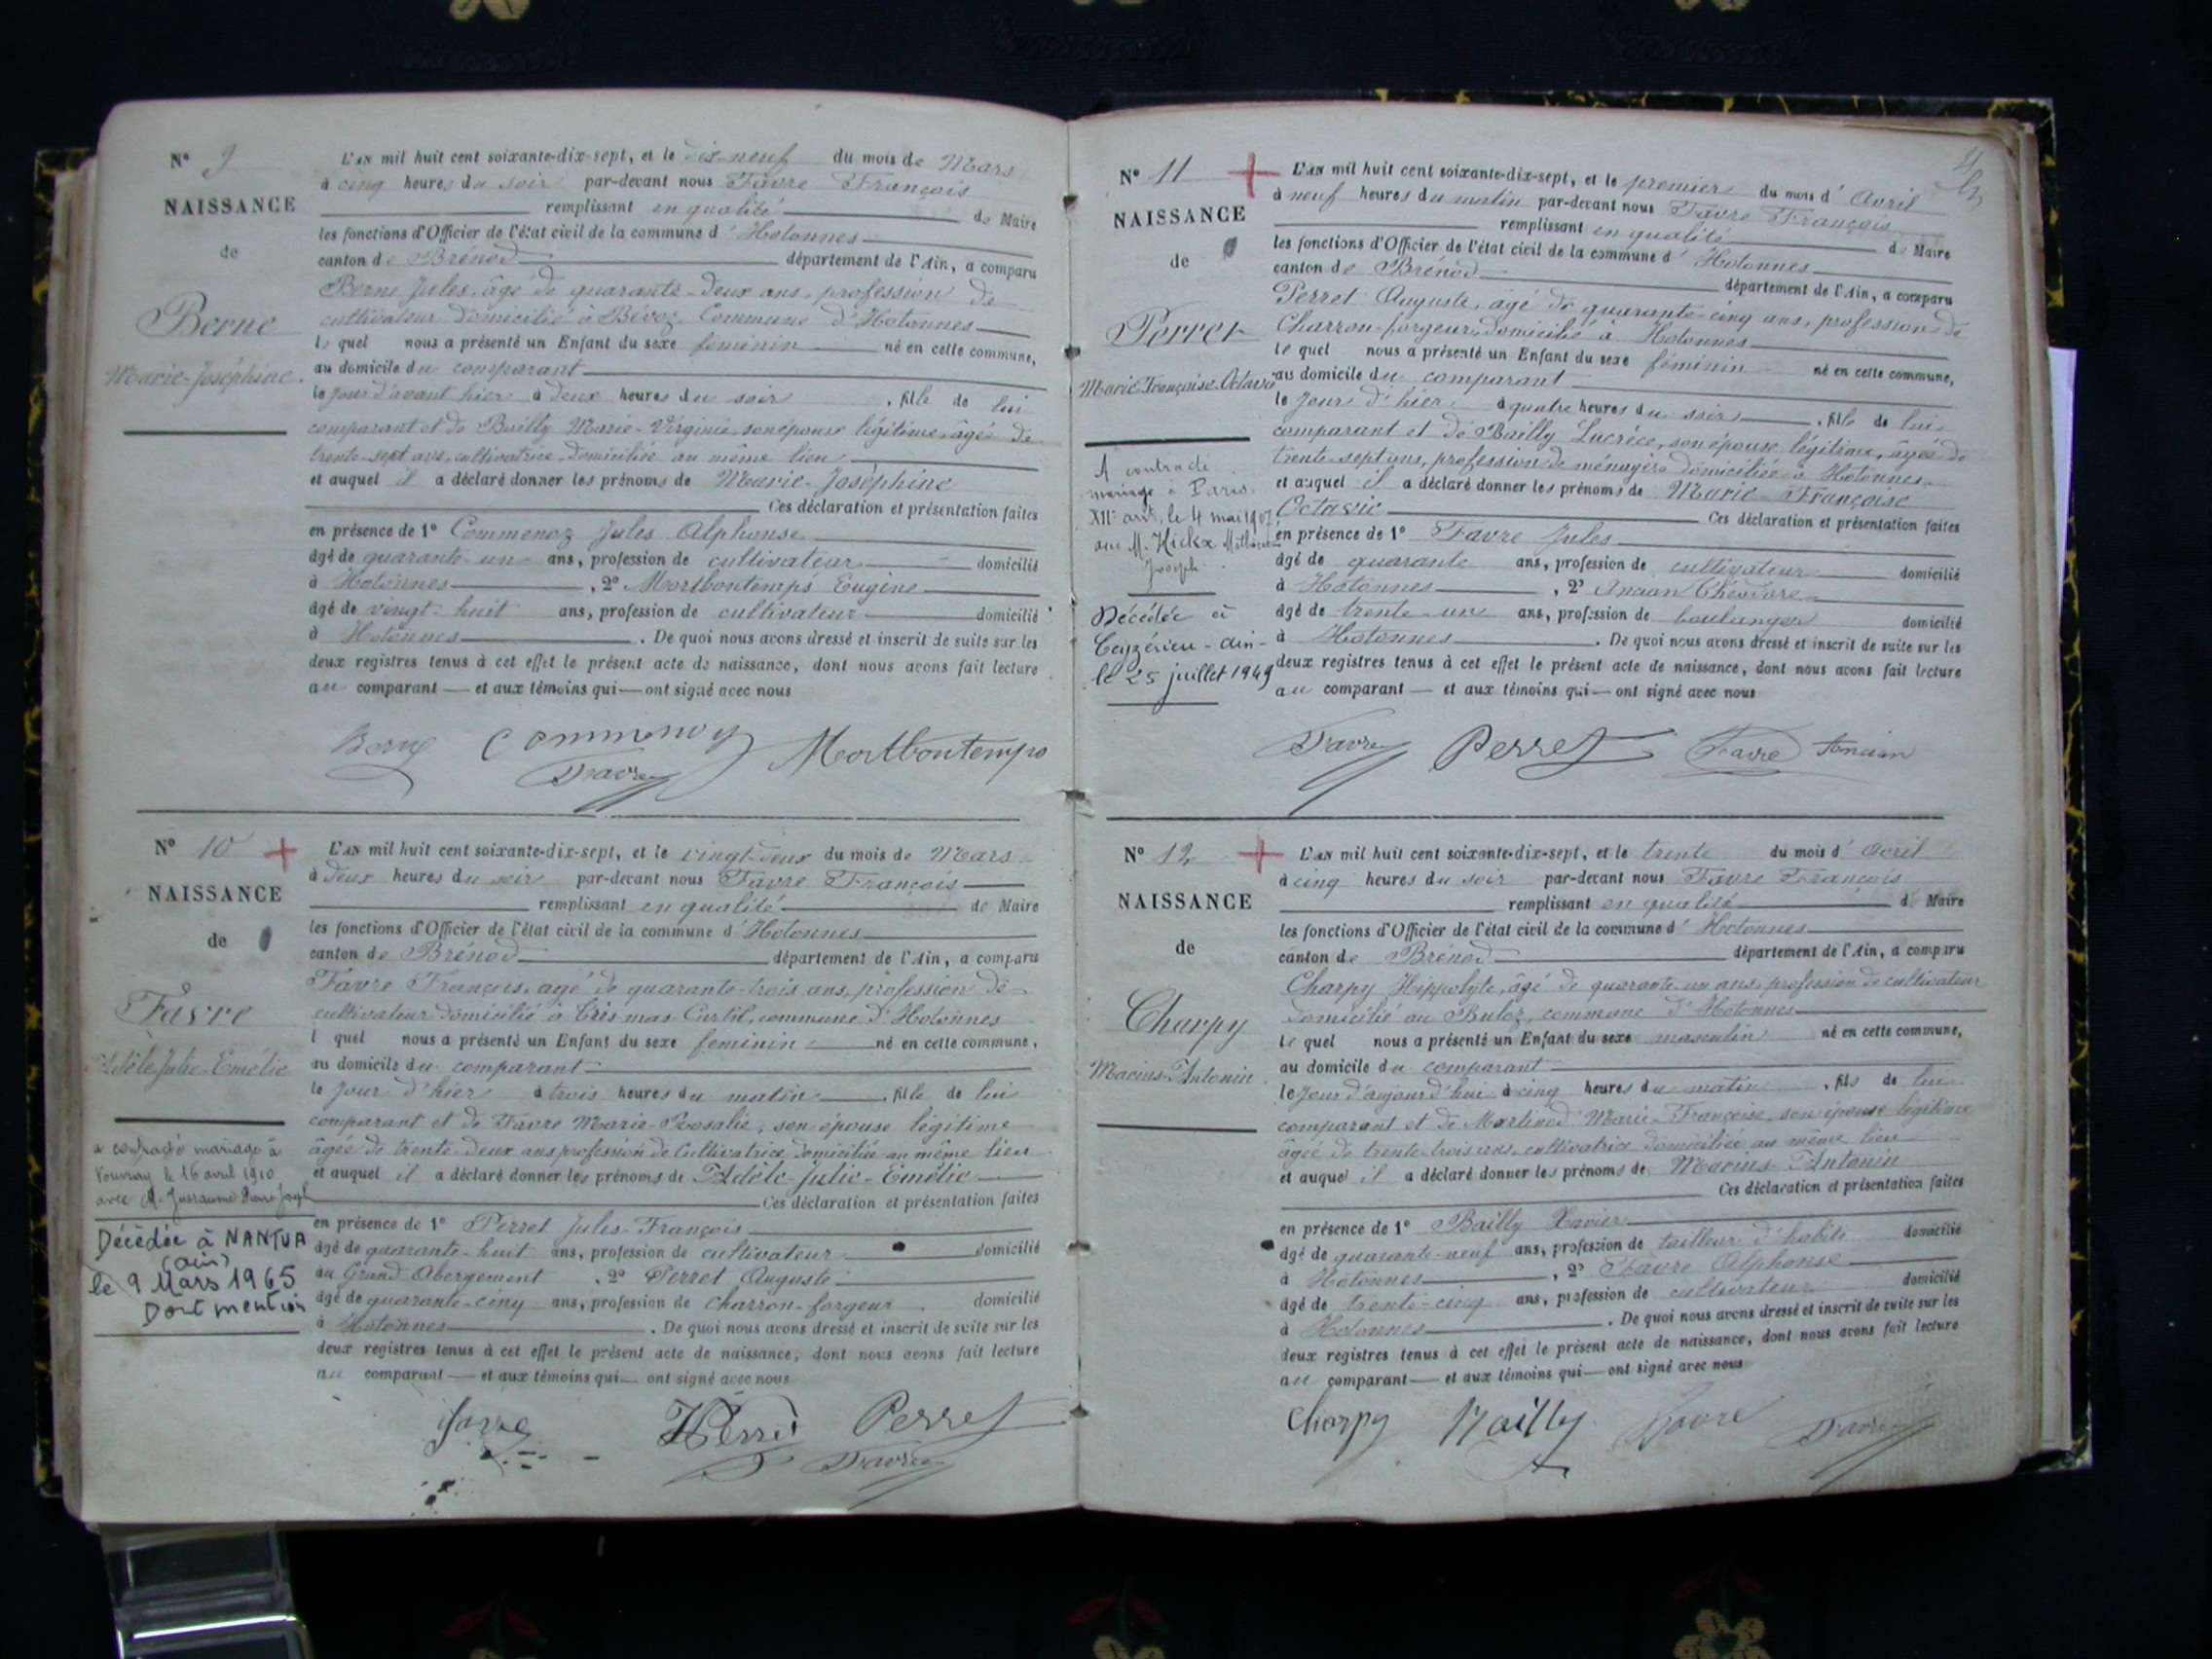 N° 9
NAISSANCE
de
Berne
Marie-Joséphine.
L'AN mil huit cent soixante-dix-sept, et le dix-neuf du mois de Mars
à cinq heures du soir par-devant nous Favre François
remplissant en qualité de Maire
les fonctions d'Officier de l'état civil de la commune d'Hotonnes
canton de Brénod département de l'Ain, a comparu
Berne Jules, âgé de quarante-deux ans, profession de
cultivateur domicilié à Commune d'Hotonnes
le quel nous a présenté un Enfant du sexe féminin né en cette commune,
au domicile du comparant
le jour d'avant hier à deux heures du soir, fille de lui
comparant et de Bailly Marie-Virginie son épouse légitime, âgée de
trente-sept ans, cultivatrice domiciliée au même lieu
et auquel il a déclaré donner les prénoms de Marie-Joséphine
Ces déclaration et présentation faites
en présence de 1° Commenoz Jules Alphonse
âgé de quarante un ans, profession de cultivateur domicilié
à Hotonnes, 2° Mortbontemps Eugène
âgé de vingt-huit ans, profession de cultivateur domicilié
à Hotonnes. De quoi nous avons dressé et inscrit de suite sur les
deux registres tenus à cet effet le présent acte de naissance, dont nous avons fait lecture
au comparant — et aux témoins qui — ont signé avec nous
Berne Mortbontemps
Favre
N° 10 +
NAISSANCE
de
Favre
Adèle-Julie-Emélie
a contracté mariage à
le 16 avril 1910
avec M.
Décédée à NANTUA
(ain)
le 9 Mars 1965
Dont mention
L'AN mil huit cent soixante-dix-sept, et le vingt-deux du mois de Mars
à deux heures du soir par-devant nous Favre François
remplissant en qualité de Maire
les fonctions d'Officier de l'état civil de la commune d'Hotonnes
canton de Brénod département de l'Ain, a comparu
Favre François, âgé de quarante-trois ans, profession de
cultivateur domicilié à commune d'Hotonnes
l quel nous a présenté un Enfant du sexe féminin né en cette commune,
au domicile du comparant
le jour d'hier à trois heures du matin, fille de lui
comparant et de Favre Marie-Rosalie, son épouse légitime
âgée de trente-deux ans profession de Cultivatrice domiciliée au même lieu
et auquel il a déclaré donner les prénoms de Adèle-Julie-Emélie
Ces déclaration et présentation faites
en présence de 1° Perret Jules-François
âgé de quarante-huit ans, profession de cultivateur domicilié
au Grand Abergement, 2° Perret Auguste
âgé de quarante-cinq ans, profession de charron-forgeur domicilié
à Hotonnes. De quoi nous avons dressé et inscrit de suite sur les
deux registres tenus à cet effet le présent acte de naissance, dont nous avons fait lecture
au comparant — et aux témoins qui — ont signé avec nous
Favre Perret
Favre
N° 11 +
NAISSANCE
de
Perret
Marie Françoise Octavie
A contracté
mariage à Paris
XIIe arrt, le 4 mai 1907
avec M.
Joseph
Décédée à
Ceyzérieu - ain -
le 25 juillet 1949
L'AN mil huit cent soixante-dix-sept, et le premier du mois d'Avril
à neuf heures du matin par-devant nous Favre François
remplissant en qualité de Maire
les fonctions d'Officier de l'état civil de la commune d'Hotonnes
canton de Brénod département de l'Ain, a comparu
Perret Auguste, âgé de quarante-cinq ans, profession de
Charron-forgeur, domicilié à Hotonnes
le quel nous a présenté un Enfant du sexe féminin né en cette commune,
au domicile du comparant
le jour d'hier à quatre heures du soir, fille de lui
comparant et de Bailly Lucrèce, son épouse légitime, âgée de
trente-sept ans, profession de ménagère domiciliée à Hotonnes
et auquel il a déclaré donner les prénoms de Marie Françoise
Octavie Ces déclaration et présentation faites
en présence de 1° Favre Jules
âgé de quarante ans, profession de cultivateur domicilié
à Hotonnes, 2° Ancian Théodore
âgé de trente-un ans, profession de boulanger domicilié
à Hotonnes. De quoi nous avons dressé et inscrit de suite sur les
deux registres tenus à cet effet le présent acte de naissance, dont nous avons fait lecture
au comparant — et aux témoins qui — ont signé avec nous
Favre Perret Favre Ancian
N° 12 +
NAISSANCE
de
Charpy
Marius-Antonin
L'AN mil huit cent soixante-dix-sept, et le trente du mois d'Avril
à cinq heures du soir par-devant nous Favre François
remplissant en qualité d Maire
les fonctions d'Officier de l'état civil de la commune d'Hotonnes
canton de Brénod département de l'Ain, a comparu
Charpy Hippolyte, âgé de quarante-un ans, profession de cultivateur
domicilié au commune d'Hotonnes
le quel nous a présenté un Enfant du sexe masculin né en cette commune,
au domicile du comparant
le jour d'aujourd'hui à cinq heures du matin, fils de lui
comparant et de Martinod Marie-Françoise, son épouse légitime
âgée de trente-trois ans, cultivatrice domiciliée au même lieu
et auquel il a déclaré donner les prénoms de Marius Antonin
Ces déclaration et présentation faites
en présence de 1° Bailly Xavier
âgé de quarante-neuf ans, profession de tailleur d'habits domicilié
à Hotonnes, 2° Favre Alphonse
âgé de trente-cinq ans, profession de cultivateur domicilié
à Hotonnes. De quoi nous avons dressé et inscrit de suite sur les
deux registres tenus à cet effet le présent acte de naissance, dont nous avons fait lecture
au comparant — et aux témoins qui — ont signé avec nous
Charpy Bailly Favre Favre